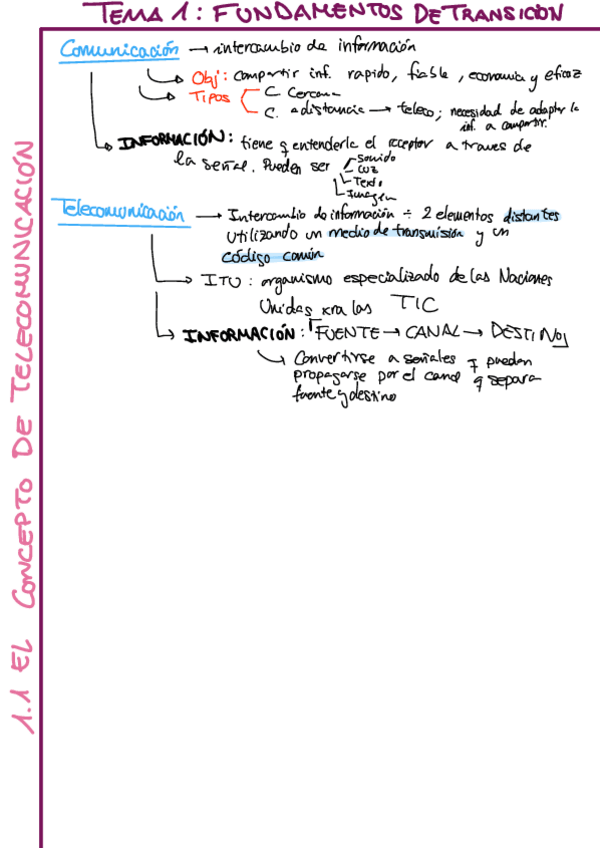 TEMA 1: FUNDAMENTOS DE TRANSICIÓN
1.1 EL CONCEPTO DE TELECOMUNICACIÓN
Comunicación → intercambio de información
Obj: compartir inf. rapido, fiable, economica y eficaz
TIPOS C. Cercana
C. a distancia → teleco; necesidad de adaptar la
inf. a compartir.
INFORMACIÓN: tiene q entenderla el receptor a traves de
la señal. Pueden ser Sonido
Luz
Texto
Imagen
Telecomunicación → Intercambio de información ÷ 2 elementos distantes
utilizando un medio de transmisión y un
código común
ITU: organismo especializado de las Naciones
Unidas xra las TIC
INFORMACIÓN: FUENTE → CANAL → DESTINO
Convertirse a señales q pueden
propagarse por el canal q separa
fuente y destino